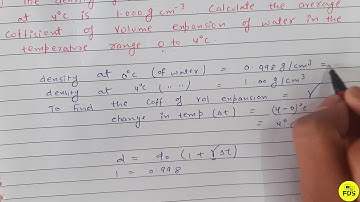 The density
at 4°c is 1.000 g cm⁻³ Calculate the average
coefficient of volume expansion of water in the
temperature range 0 to 4°c.
density at 0°c (of water) = 0.998 g/cm³ =
density at 4°c ( " " ) = 1.00 g/cm³
To find the coff of vol expansion = γ
change in temp (Δt) = (4-0)°c
= 4°
d = d₀ (1 + γ Δt)
1 = 0.998
FDS